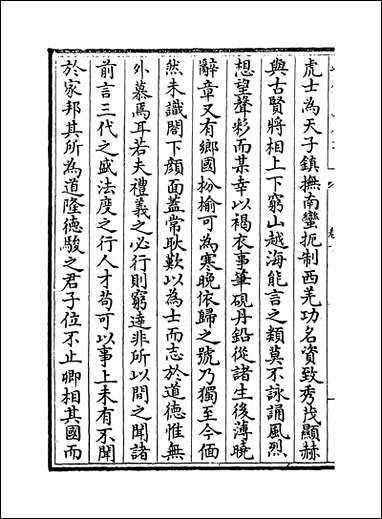 虎士為天子鎮撫南蠻扼制西羌功名資致秀茂顯赫
與古賢將相上下窮山越海能言之類莫不詠誦風烈
想望聲彩而某幸以褐衣事筆硯丹鉛從諸生後薄曉
辭章又有鄉國枌榆可為寒晚依歸之號乃獨至今偭
然未識閤下顔面蓋常耿歎以為士而志於道德惟無
外慕焉耳若夫禮義之必行則窮達非所以間之聞諸
前言三代之盛法度之行人才苟可以事上未有不聞
於家邦其所為道隆德駿之君子位不止卿相其國而